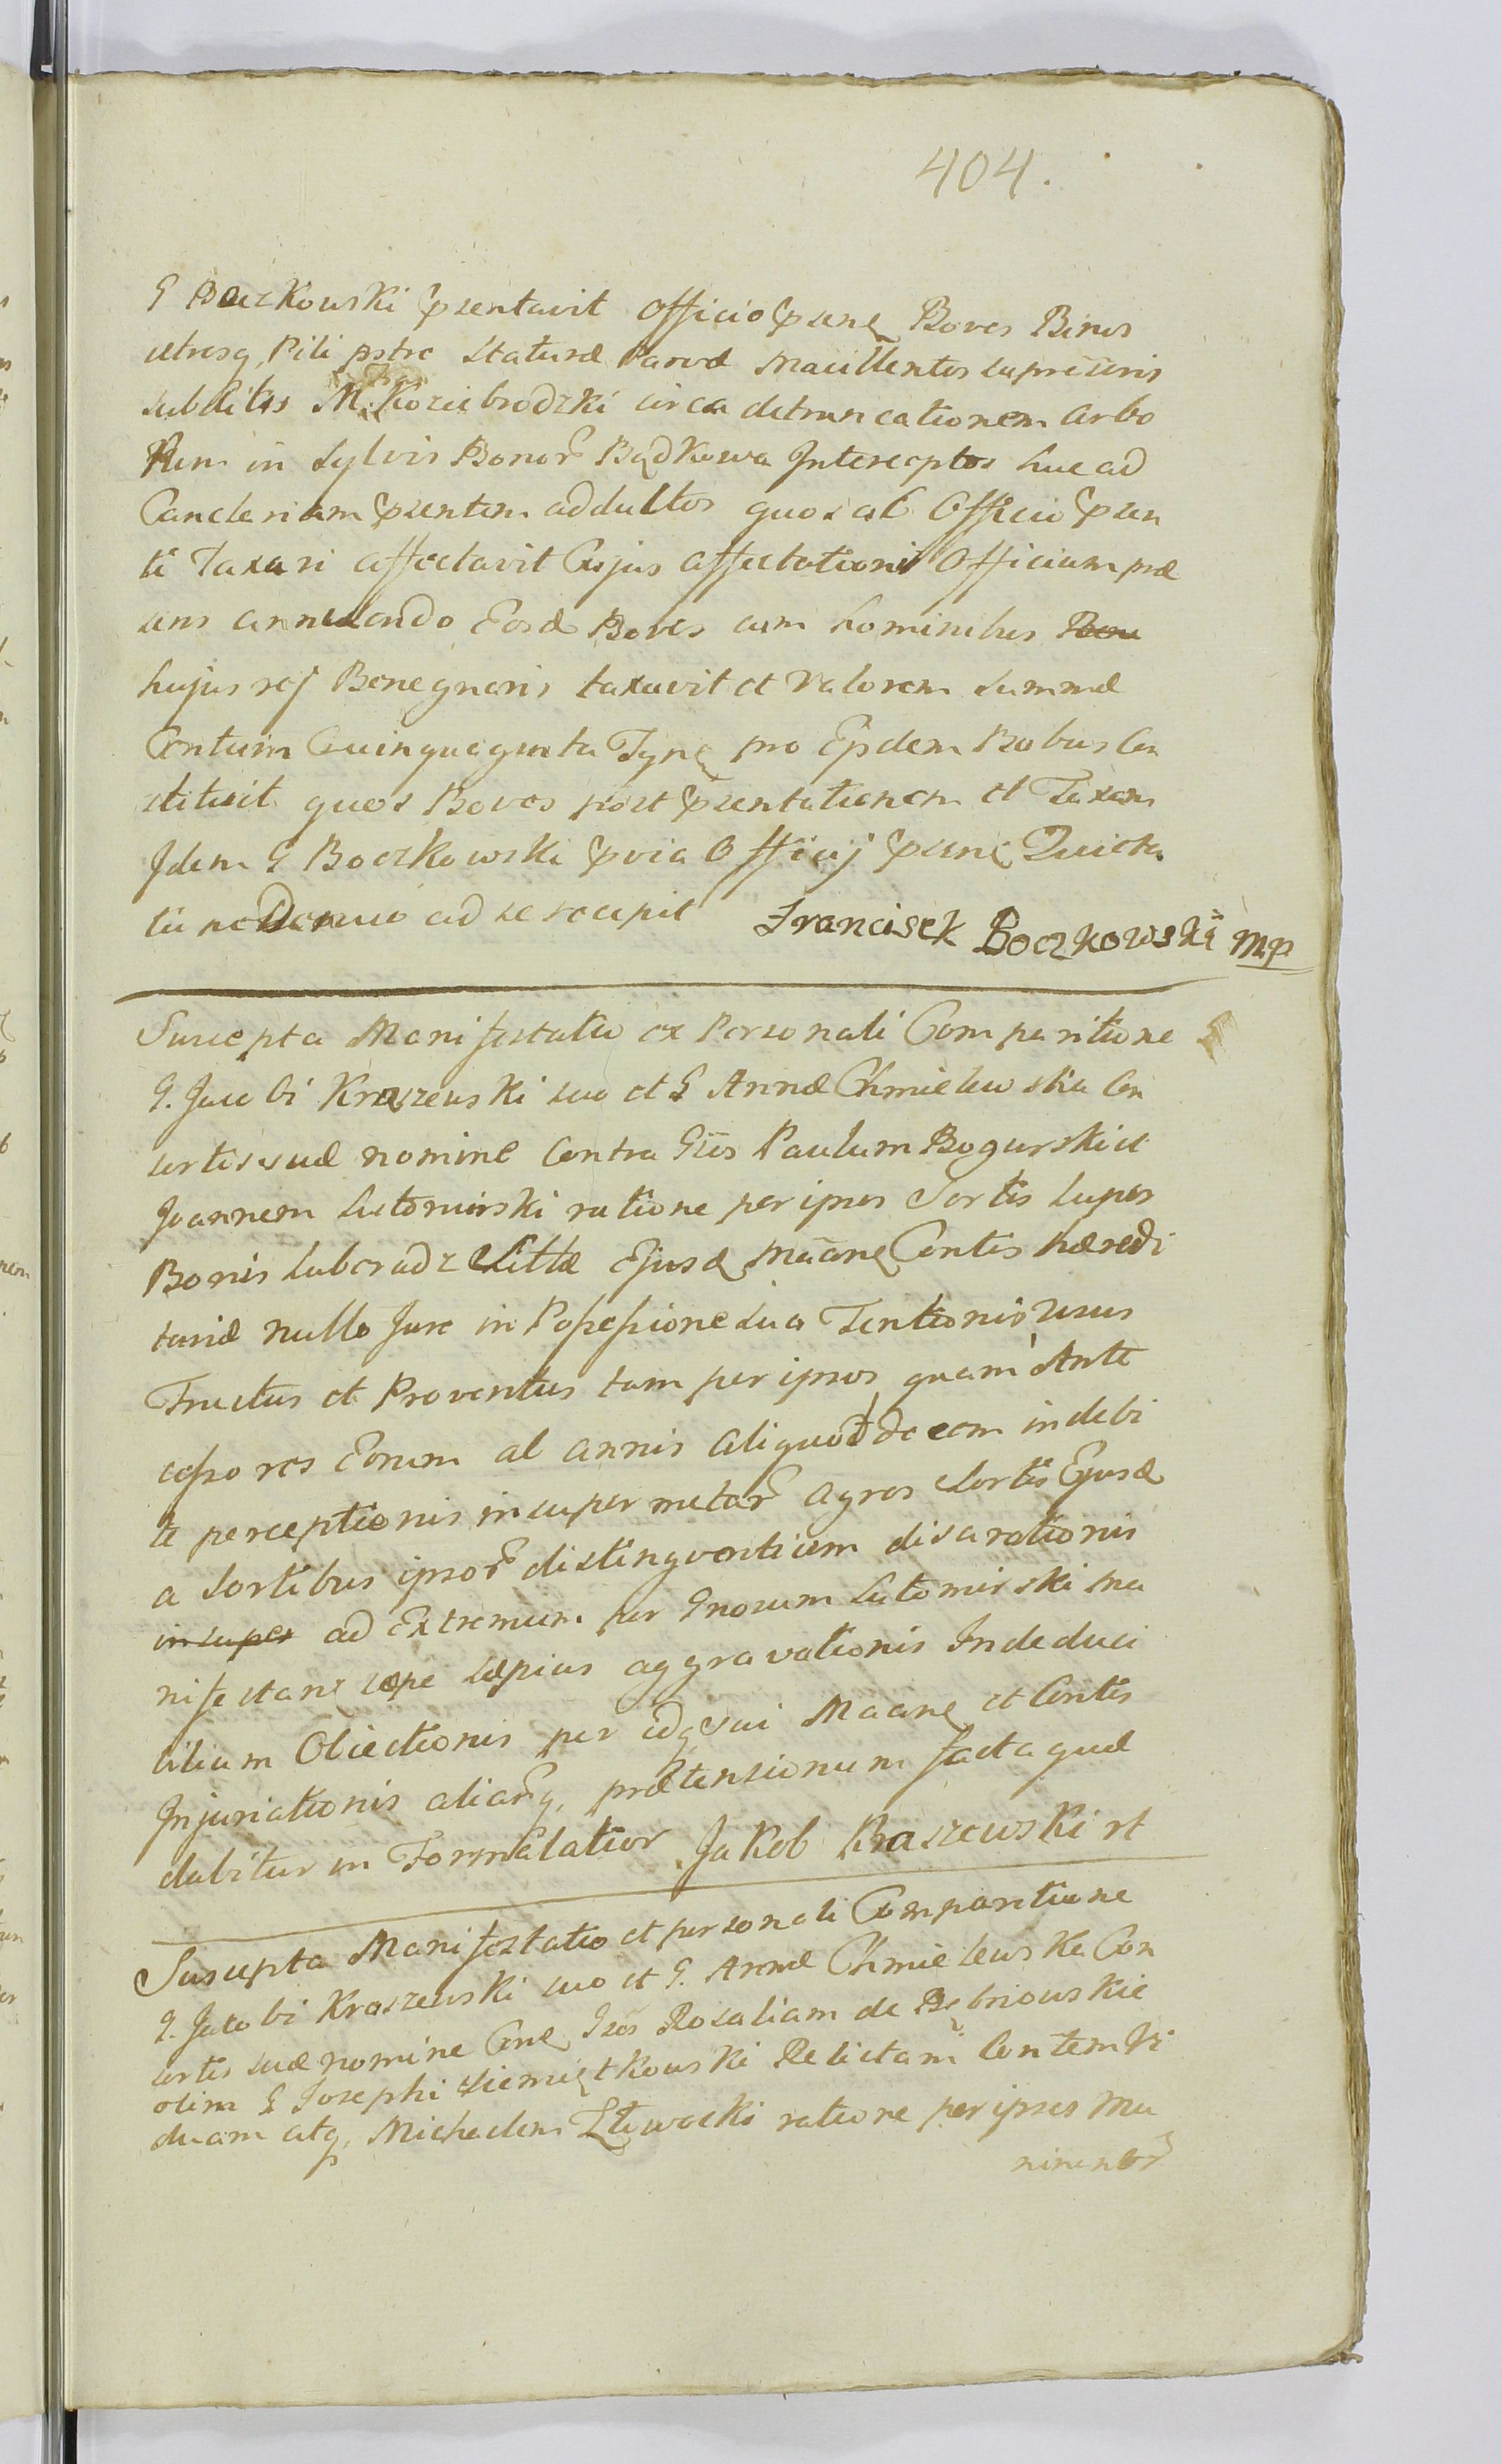 404.
G Boczkowski przentavit Officio przenę Boves Binos
utresq, Pili pstre Staturæ Parvæ Macillentos supremis
subditis M. Koziebrodzki circa detruncationem Arbo
Rum in Sylvis Bonor Bądkowa Interceptos huc ad
Cancleriam przentem adductos quos ab Officio przen
ti Taxari affectavit Cujus affectationi Officium præ
sens annuendo Eosd Boves cum hominibus
hujus rej Benegnaris taxavit et Valorem summæ
Centum Quinquaginta Tynę pro Ejsdem Bobus Con
stituit quos Boves post przentationem et Taxam
Idem G Boczkowski prvia Officij przenę Quieta
tione Denuo ad se recepit Franciszek Boczkowski mp
Suscepta Manifestatio ex Personali Comparitione
G. Jacobi Kraszewski suo et G Annæ Chmielewska Con
sortis suæ nomine Contra Gsos Paulum Bogurski et
Joannem Lutomirski ratione per ipsos Sortis super
Bonis Luberadz Sittæ Ejusd Maanę Contis hæredi
tariæ nullo Jure in Possessione sua Tentionis Usus
Fructus et Proventus tam per ipsos quam Ante
cessores Eorum al annis aliquod decem indebi
te perceptionis insuper metar Agros Sortis Ejusd
a Sortibus ipsor distinguentium disarationis
insuper ad Extremum per Gnosum Lutomirski ma
nifestanę sæpe sæpius aggravationis Indeduci
bilium Obiectionis per idq sui Maanę et Contis
Injuriationis aliarq, prætensionum facta quæ
dabitur in Forma latior Jakob Kraszewski rt
Suscepta Manifestatio et personali Comparitione
G. Jacobi Kraszewski suo et G. Annæ Chmielewska Con
sortis suæ nomine Cone Gsos Rosaliam de Dębnowskie
olim G Josephi Siemiątkowski Relictam Contem Vi
duam atq, Michaelem Zławocki ratione per ipsos Mu
nimentor